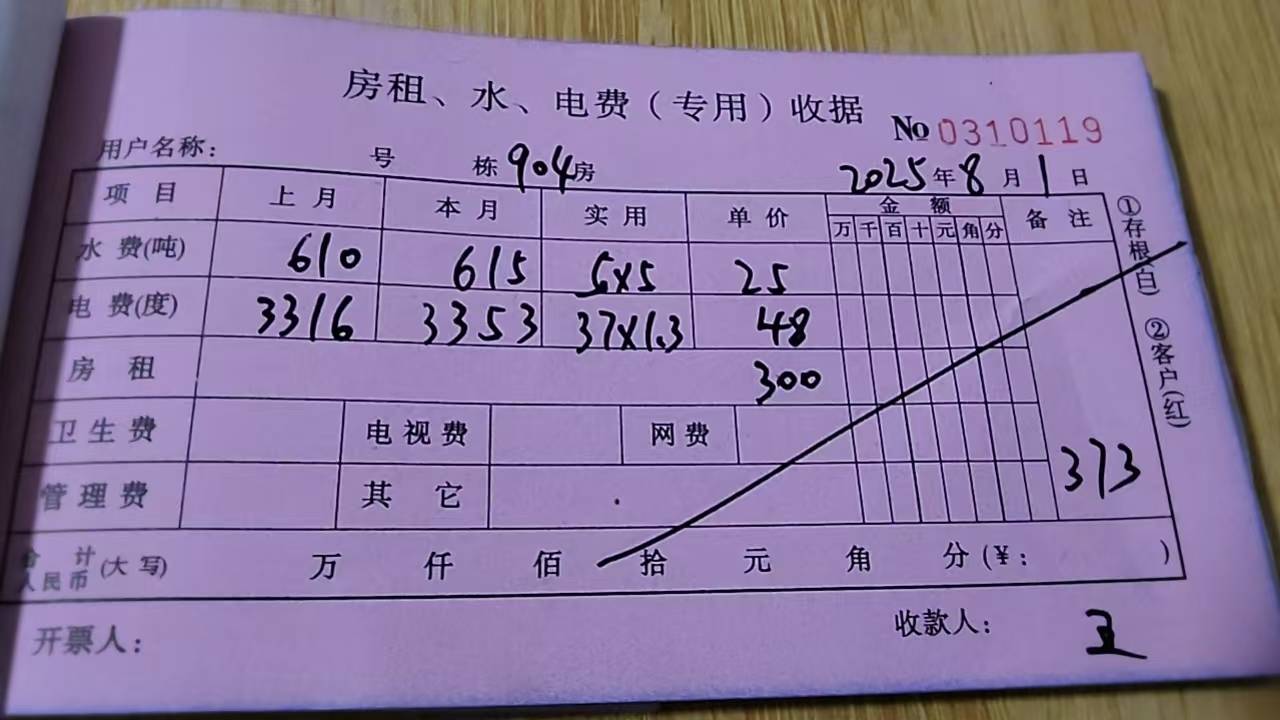 房租、水、电费（专用）收据
No 0310119
用户名称： 号 栋 904房 2025年8月1日
项目 上月 本月 实用 单价 金额 备注
万千百十元角分
水费(吨) 610 615 5x5 25
电费(度) 3316 3353 37x1.3 48
房租 300
卫生费 电视费 网费
管理费 其它 373
合计人民币(大写) 万 仟 佰 拾 元 角 分(¥: )
开票人： 收款人： 王
①存根(白) ②客户(红)